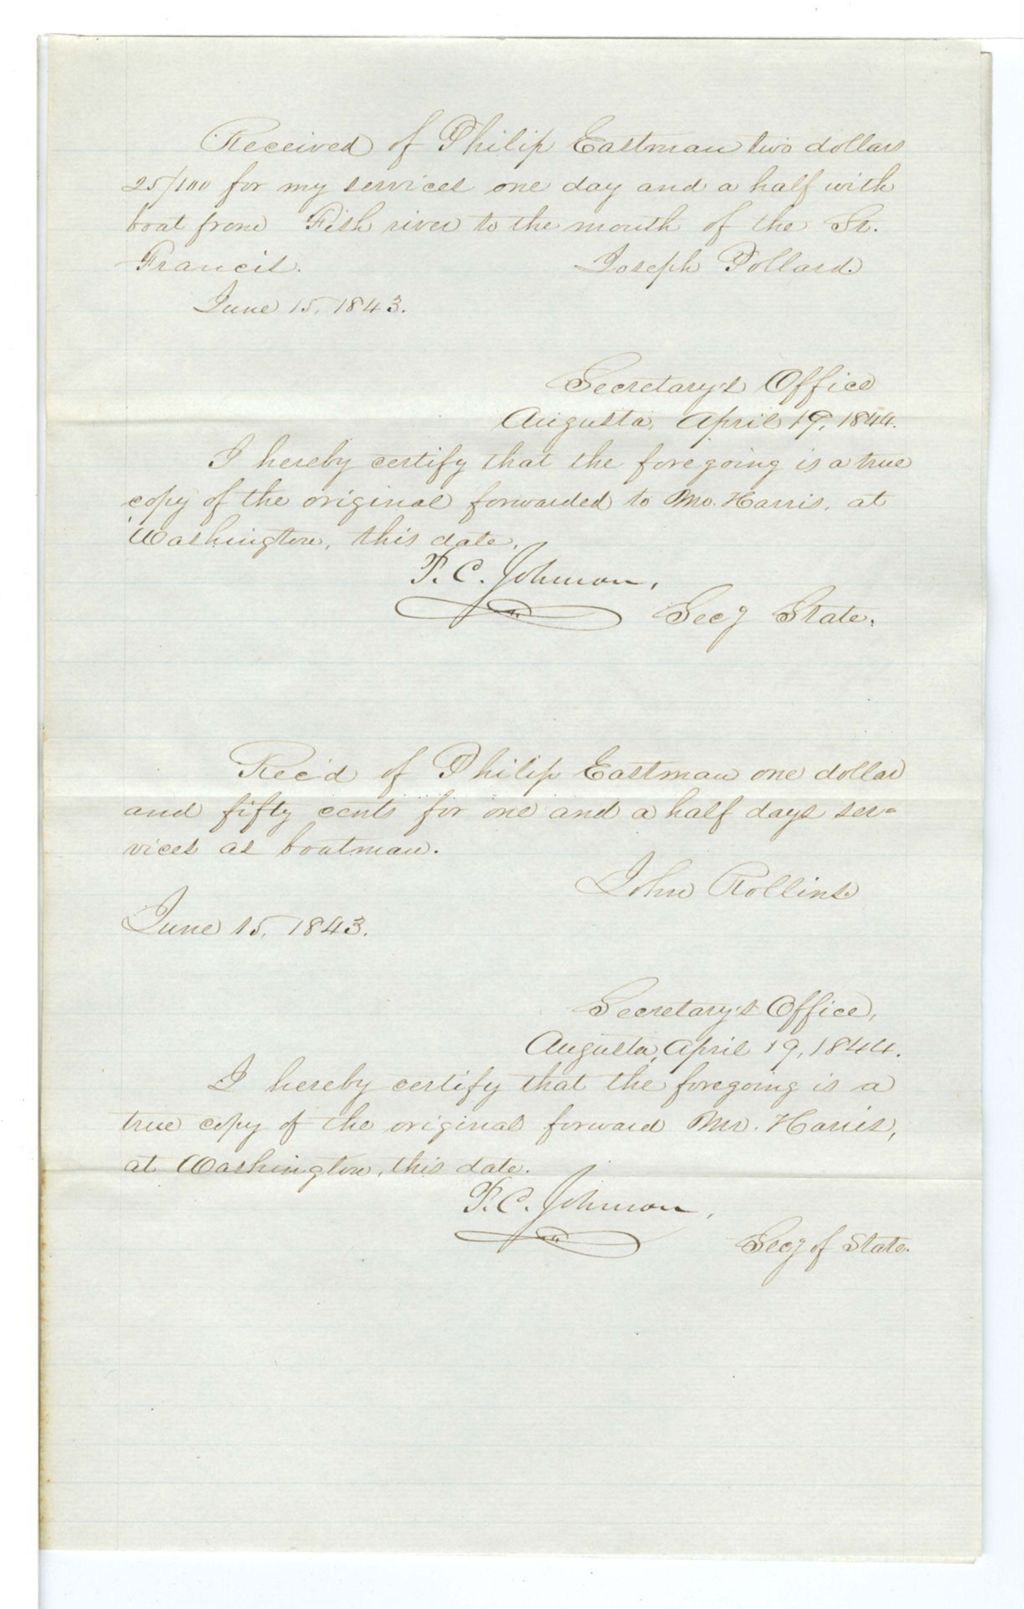 Received of Philip Eastman two dollars
25/100 for my services one day and a half with
boat from Fish river to the mouth of the St.
Francis. Joseph Pollard.
June 15, 1843.
Secretary's Office
Augusta, April 19, 1844.
I hereby certify that the foregoing is a true
copy of the original forwarded to Mr. Harris, at
Washington, this date.
P. C. Johnson,
Secy State.
Rec'd of Philip Eastman one dollar
and fifty cents for one and a half days ser=
vices as boatman.
John Rollins
June 15, 1843.
Secretary's Office,
Augusta, April 19, 1844.
I hereby certify that the foregoing is a
true copy of the original forward Mr. Harris,
at Washington, this date.
P. C. Johnson,
Secy of State.